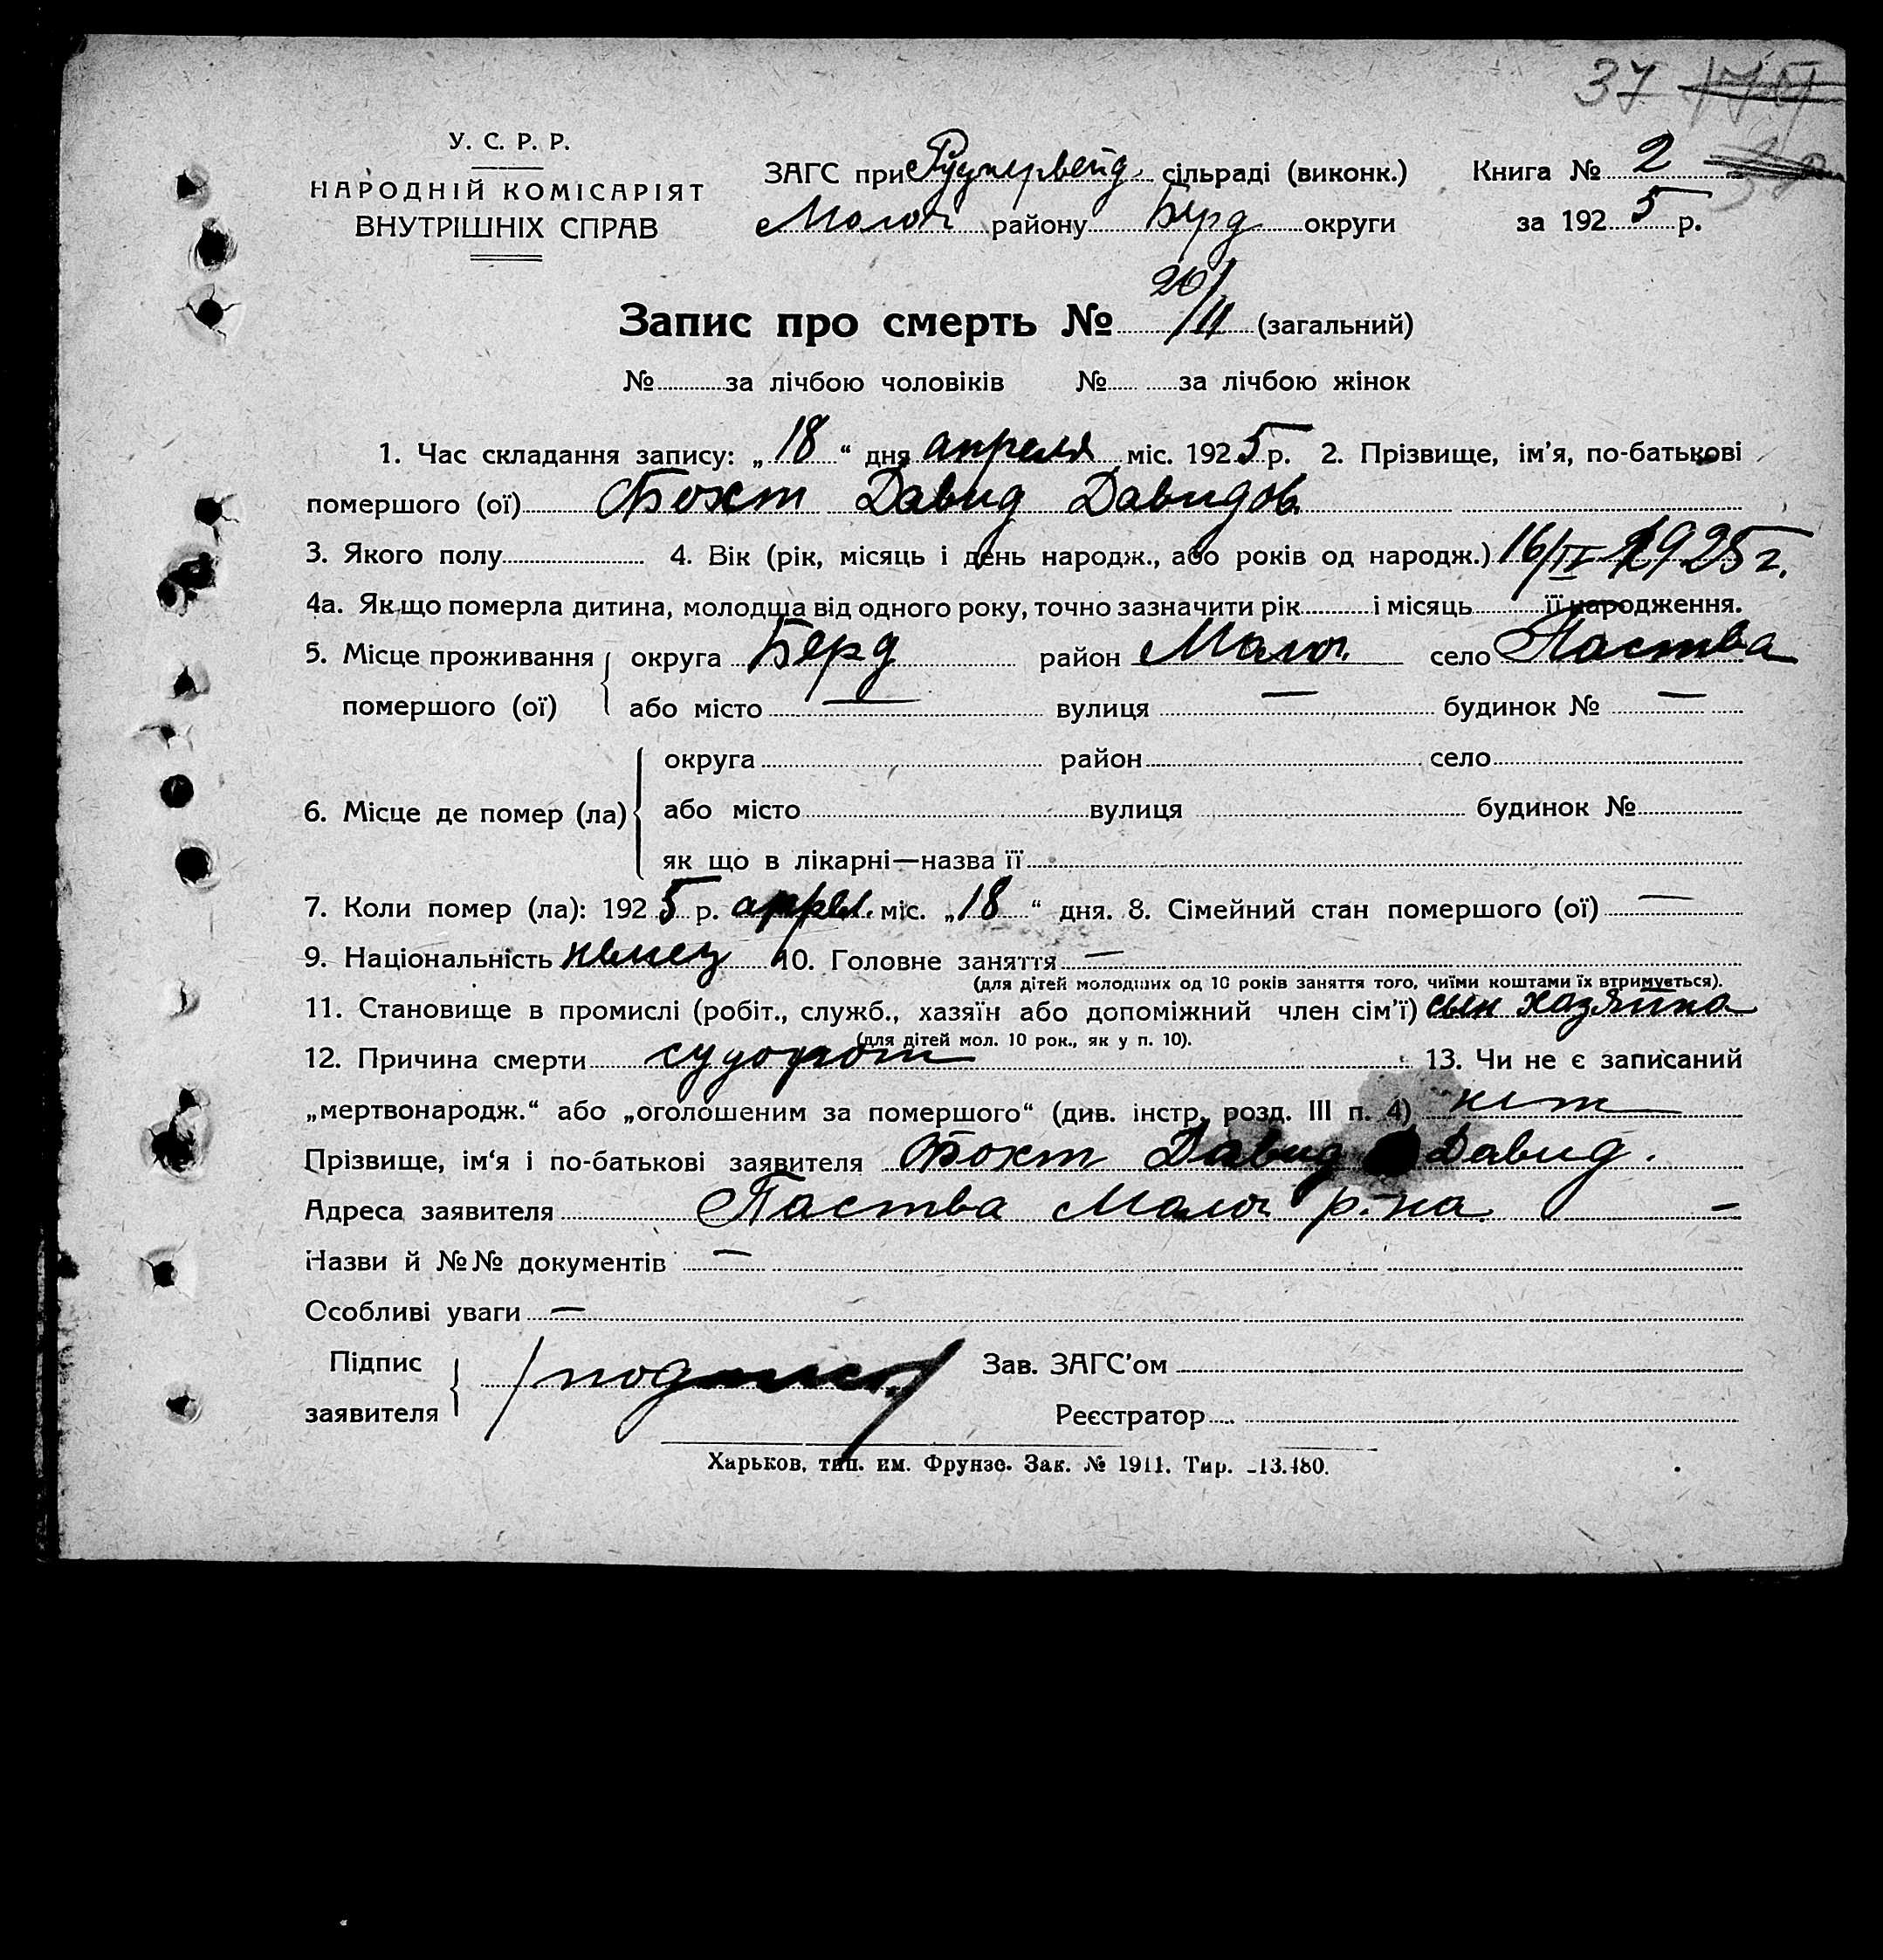 37
У. С. Р. Р.
НАРОДНІЙ КОМІСАРІЯТ
ВНУТРІШНІХ СПРАВ
ЗАГС при Рукнервейд сільраді (виконк.) Книга № 2
Молоч району Берд округи за 1925 р.
Запис про смерть № 20/11 (загальний)
№ за лічбою чоловіків № за лічбою жінок
1. Час складання запису: „18“ дня апреля міс. 1925 р. 2. Прізвище, ім'я, по-батькові
помершого (ої) Бокт Давид Давидов.
3. Якого полу 4. Вік (рік, місяць і день народж., або років од народж.) 16/IV 1925 г.
4а. Якщо померла дитина, молодша від одного року, точно зазначити рік і місяць її народження.
5. Місце проживання округа Берд район Молоч. село Паства
помершого (ої) або місто — вулиця — будинок № —
округа район село
6. Місце де помер (ла) або місто вулиця будинок №
як що в лікарні—назва її
7. Коли помер (ла): 1925 р. апрел. міс. „18“ дня. 8. Сімейний стан помершого (ої) —
9. Національність немец 10. Головне заняття —
(для дітей молодших од 10 років заняття того, чиїми коштами їх втримується).
11. Становище в промислі (робіт., служб., хазяїн або допоміжний член сім'ї) сын хозяина
(для дітей мол. 10 рок., як у п. 10).
12. Причина смерти судорот 13. Чи не є записаний
„мертвонародж.“ або „оголошеним за помершого“ (див. інстр. розд. III п. 4) нет
Прізвище, ім'я і по-батькові заявителя Бокт Давид Давид.
Адреса заявителя Паства Молоч р-на —
Назви й №№ документів —
Особливі уваги —
Підпис
заявителя /подпись/
Зав. ЗАГС'ом
Реєстратор
Харьков, тип. им. Фрунзе. Зак. № 1911. Тир. 13.480.